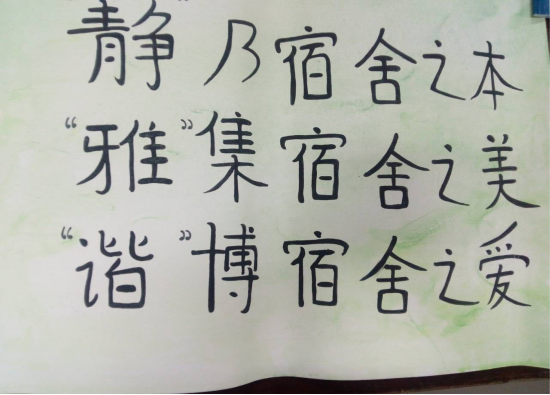 “静”乃宿舍之本
“雅”集宿舍之美
“谐”博宿舍之爱